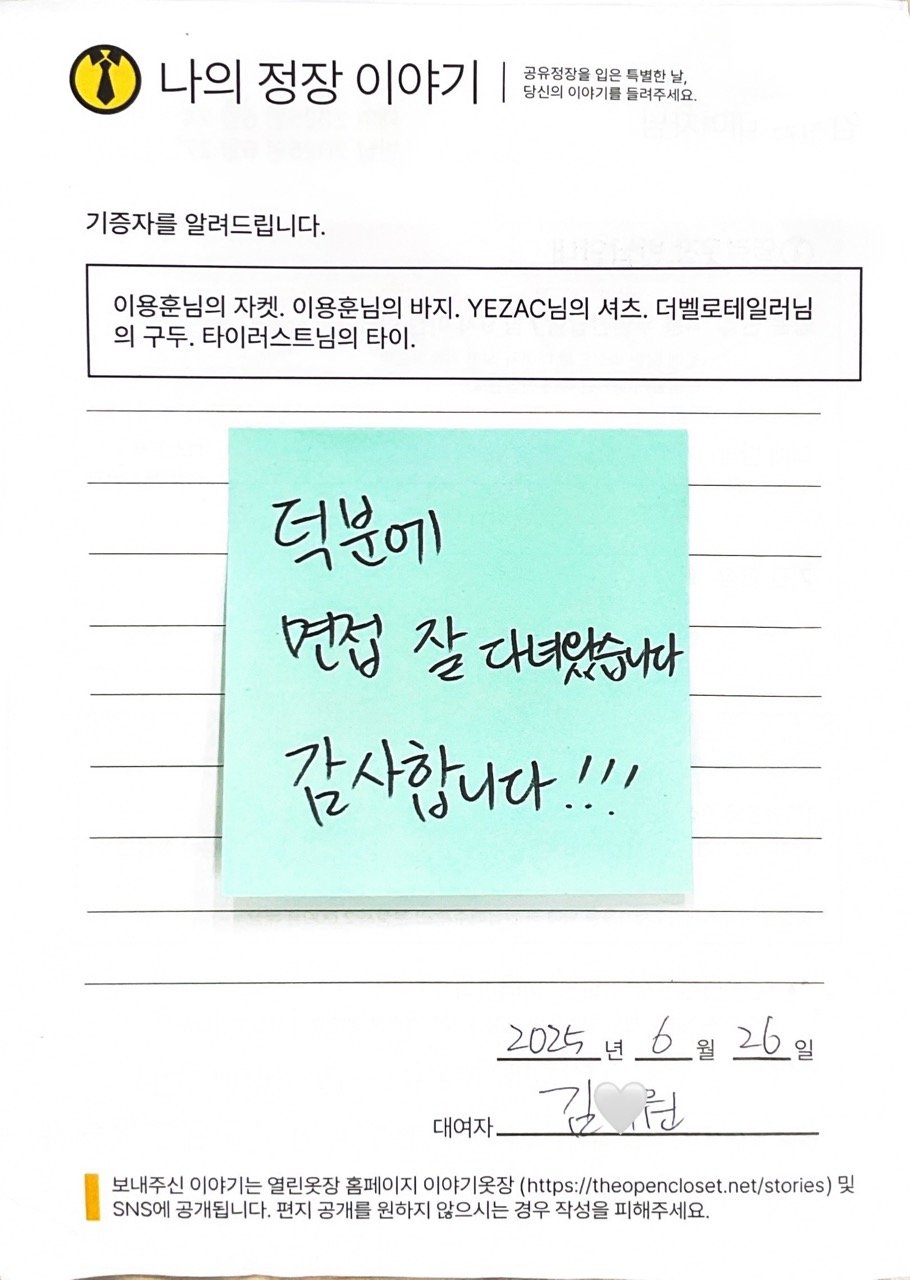 나의 정장 이야기
공유정장을 입은 특별한 날,
당신의 이야기를 들려주세요.
기증자를 알려드립니다.
이용훈님의 자켓. 이용훈님의 바지. YEZAC님의 셔츠. 더벨로테일러님
의 구두. 타이러스트님의 타이.
덕분에
면접 잘 다녀왔습니다
감사합니다!!!
2025년 6월 26일
대여자 김🤍원
보내주신 이야기는 열린옷장 홈페이지 이야기옷장 (https://theopencloset.net/stories) 및
SNS에 공개됩니다. 편지 공개를 원하지 않으시는 경우 작성을 피해주세요.